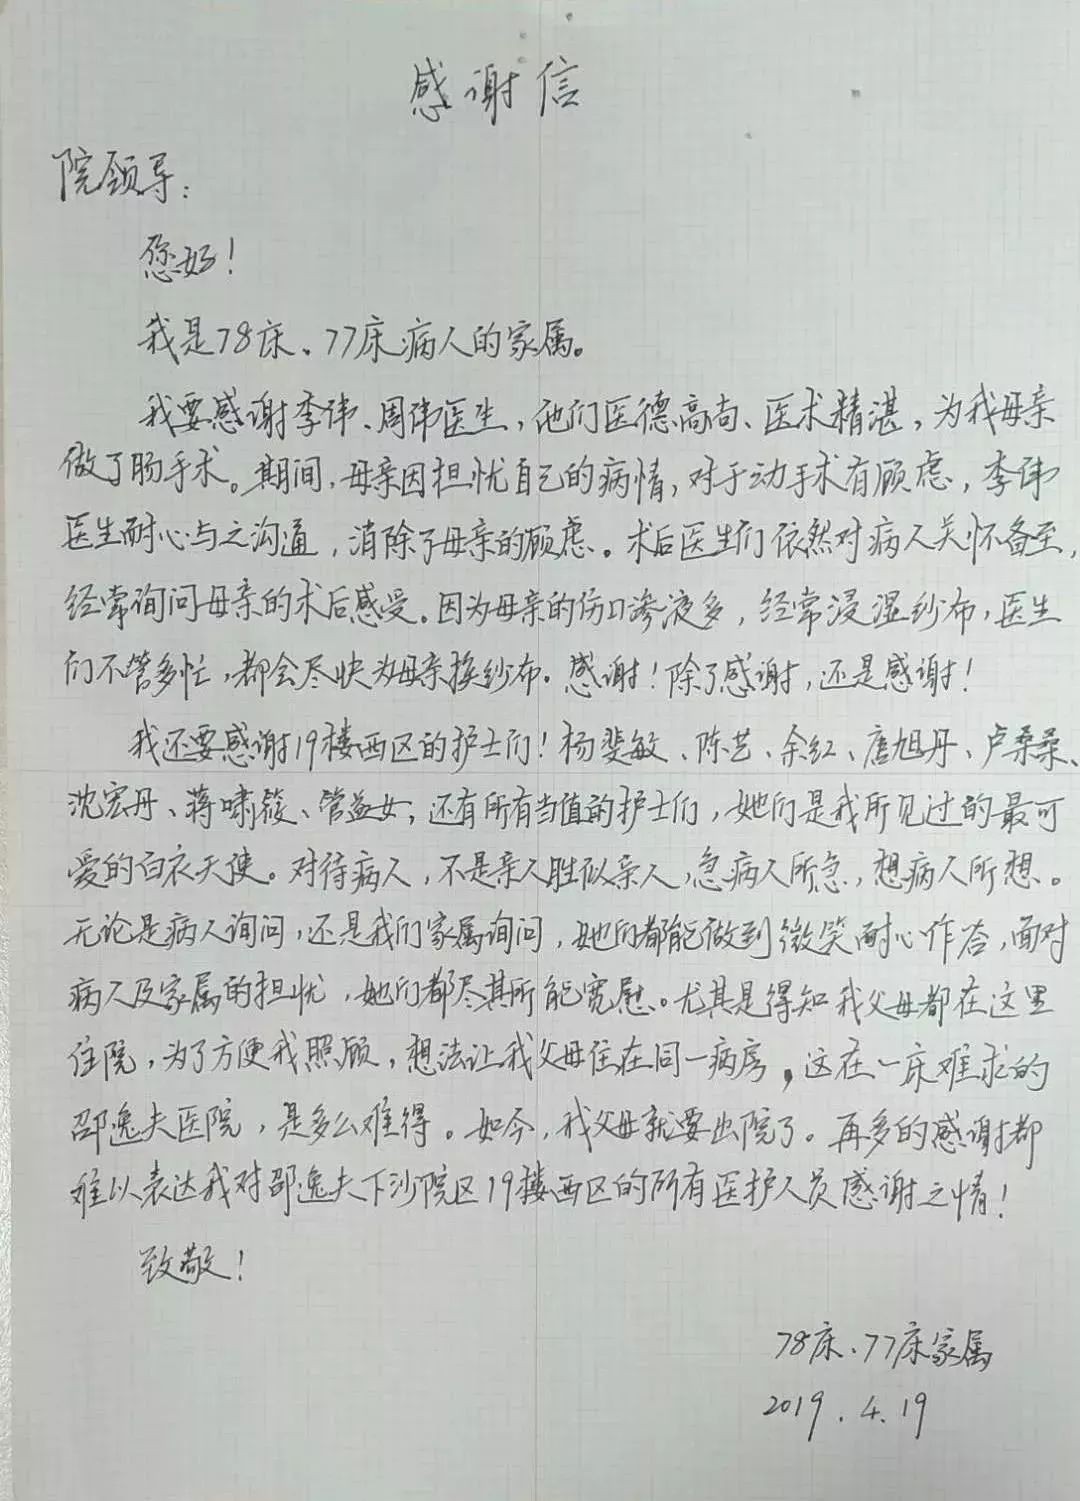 感谢信
院领导：
您好！
我是78床、77床病人的家属。
我要感谢李伟、周伟医生，他们医德高尚、医术精湛，为我母亲
做了肠手术。期间，母亲因担忧自己的病情，对于动手术有顾虑，李伟
医生耐心与之沟通，消除了母亲的顾虑。术后医生们依然对病人关怀备至，
经常询问母亲的术后感受。因为母亲的伤口渗液多，经常浸湿纱布，医生
们不管多忙，都会尽快为母亲换纱布。感谢！除了感谢，还是感谢！
我还要感谢19楼西区的护士们！杨斐敏、陈艺、余红、唐旭丹、卢桑桑、
沈宏丹、蒋啸筱、管益女；还有所有当值的护士们，她们是我所见过的最可
爱的白衣天使。对待病人，不是亲人胜似亲人，急病人所急，想病人所想。
无论是病人询问，还是我们家属询问，她们都能做到微笑耐心作答，面对
病人及家属的担忧，她们都尽其所能宽慰。尤其是得知我父母都在这里
住院，为了方便我照顾，想法让我父母住在同一病房，这在一床难求的
邵逸夫医院，是多么难得。如今，我父母就要出院了。再多的感谢都
难以表达我对邵逸夫下沙院区19楼西区的所有医护人员感谢之情！
致敬！
78床、77床家属
2019.4.19